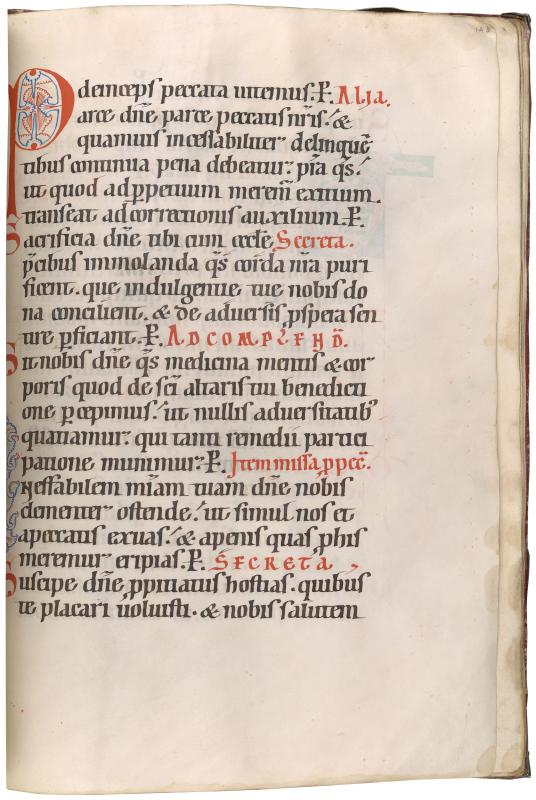 deinceps peccata uitemus. P. Alia.
Parce dn̄e parce peccatis nr̄is. &
quamuis incessabiliter delinquē
tibus continua pena debeatur. p̄ta q̄s.
ut quod ad ꝑpetuum merem̄ exitium.
transeat ad correctionis auxilium. P.
Sacrificia dn̄e tibi cum eccl̄e Secreta.
p̄cibus immolanda q̄s corda nr̄a puri
ficent. que indulgentie tue nobis do
na concilient. & de aduersis ꝓspera sen
tire ꝑficiant. P. AD COMPLEND̄.
Sit nobis dn̄e q̄s medicina mentis & cor
poris quod de sc̄i altaris tui benedicti
one ꝑcepimus. ut nullis aduersitatib᷒
quatiamur. qui tanti remedii partici
patione munimur. P. Item missa ꝓ pecc̄.
Ineffabilem mīam tuam dn̄e nobis
clementer ostende. ut simul nos et
a peccatis exuas. & a penis quas ꝓ his
meremur eripias. P. SECRETA
Suscipe dn̄e ꝓpitiatus hostias. quibus
te placari uoluisti. & nobis salutem